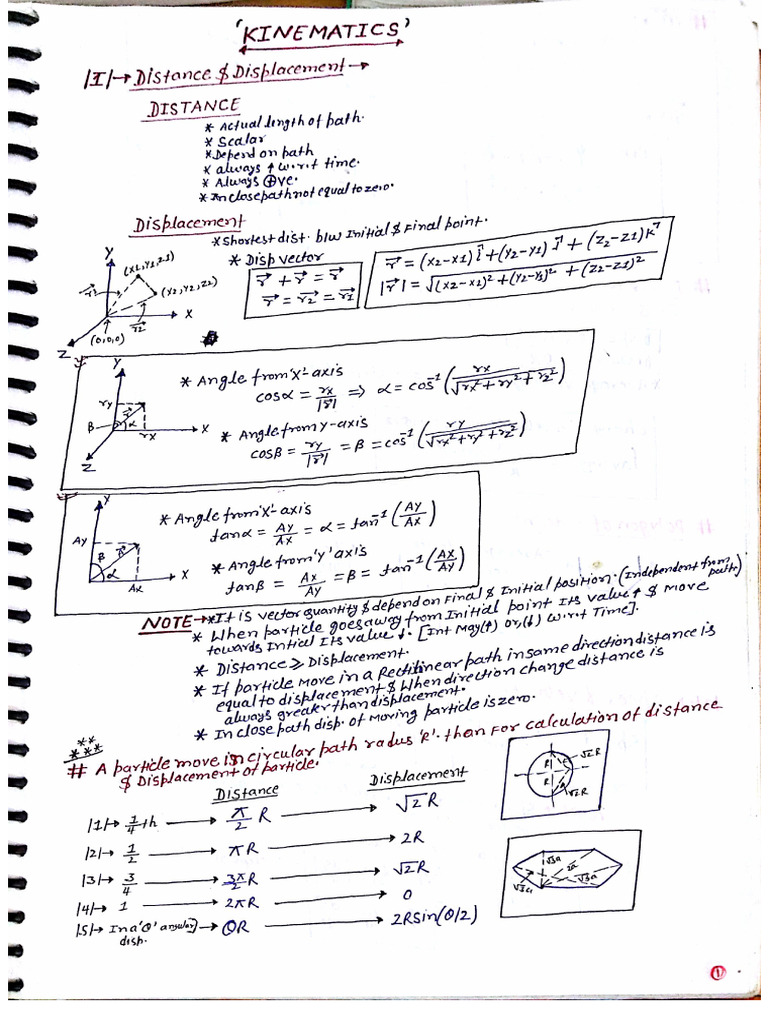 'KINEMATICS'
|I|→ Distance & Displacement →
DISTANCE
* Actual length of path.
* Scalar
* Depend on path
* always ↑ w.r.t time.
* Always ⊕ve.
* In close path not equal to zero.
Displacement
* Shortest dist. b/w Initial & Final point.
* Disp vector
r⃗ + r⃗ = r⃗
r⃗ = r⃗2 = r⃗1
r⃗ = (x2-x1) i⃗ + (y2-y1) j⃗ + (z2-z1) k⃗
|r⃗| = √(x2-x1)² + (y2-y1)² + (z2-z1)²
Y
(x1,y1,z1)
(x2,y2,z2)
X
(0,0,0)
r⃗2
Z
Y
ry
r⃗
β
α
rx
X
Z
* Angle from 'X' axis
cosα = rx/|r⃗| ⇒ α = cos⁻¹ (rx/√rx²+ry²+rz²)
* Angle from y-axis
cosβ = ry/|r⃗| = β = cos⁻¹ (ry/√rx²+ry²+rz²)
Y
Ay
β
α
Ax
X
* Angle from 'X'- axis
tanα = Ay/Ax = α = tan⁻¹ (Ay/Ax)
* Angle from 'Y' axis
tanβ = Ax/Ay = β = tan⁻¹ (Ax/Ay)
NOTE → * It is vector quantity & depend on Final & Initial position. (Independent from path)
* When particle goes away from Initial point Its value ↑ & Move
towards Intial Its value ↓. [Int May(↑) or,(↓) w.r.t Time].
* Distance ≥ Displacement.
* If particle Move in a Rectilinear path in same direction distance is
equal to displacement & When direction change distance is
always greater than displacement.
* In close path disp. of Moving particle is zero.
**
***
# A particle move is in circular path radus 'R'. than For calculation of distance
& Displacement of particle.
Distance Displacement
|1|→ 1/4 th → π/2 R → √2 R
|2|→ 1/2 → πR → 2R
|3|→ 3/4 → 3π/2 R → √2R
|4|→ 1 → 2πR → 0
|5|→ In a 'θ' angular disp. → θR → 2Rsin(θ/2)
R
√2R
R
R
√2R
√3a
2a
√3a
√3a
1